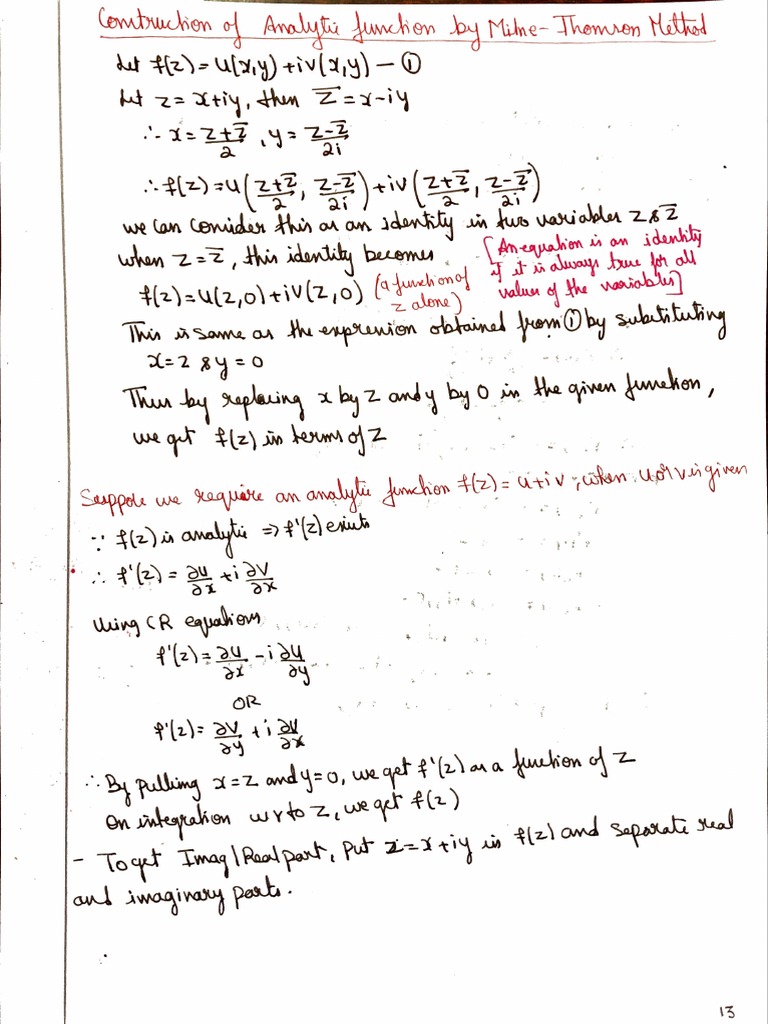 Construction of Analytic function by Milne-Thomson Method
Let f(z) = u(x,y) + iv(x,y) — ①
Let z = x+iy, then z̅ = x-iy
∴ x = (z+z̅)/2 , y = (z-z̅)/2i
∴ f(z) = u((z+z̅)/2, (z-z̅)/2i) + iv((z+z̅)/2, (z-z̅)/2i)
we can consider this as an identity in two variables z & z̅
when z = z̅, this identity becomes
[An equation is an identity
if it is always true for all
values of the variables]
f(z) = u(z,0) + iv(z,0) (a function of
z alone)
This is same as the expression obtained from ① by substituting
x = z & y = 0
Thus by replacing x by z and y by 0 in the given function,
we get f(z) in terms of z
Suppose we require an analytic function f(z) = u+iv, when u or v is given
∵ f(z) is analytic ⇒ f'(z) exists
∴ f'(z) = ∂u/∂x + i ∂v/∂x
Using CR equations
f'(z) = ∂u/∂x - i ∂u/∂y
OR
f'(z) = ∂v/∂y + i ∂v/∂x
∴ By putting x = z and y = 0, we get f'(z) as a function of z
On integration wr to z, we get f(z)
- To get Imag/Real part, put z = x+iy in f(z) and separate real
and imaginary parts.
13